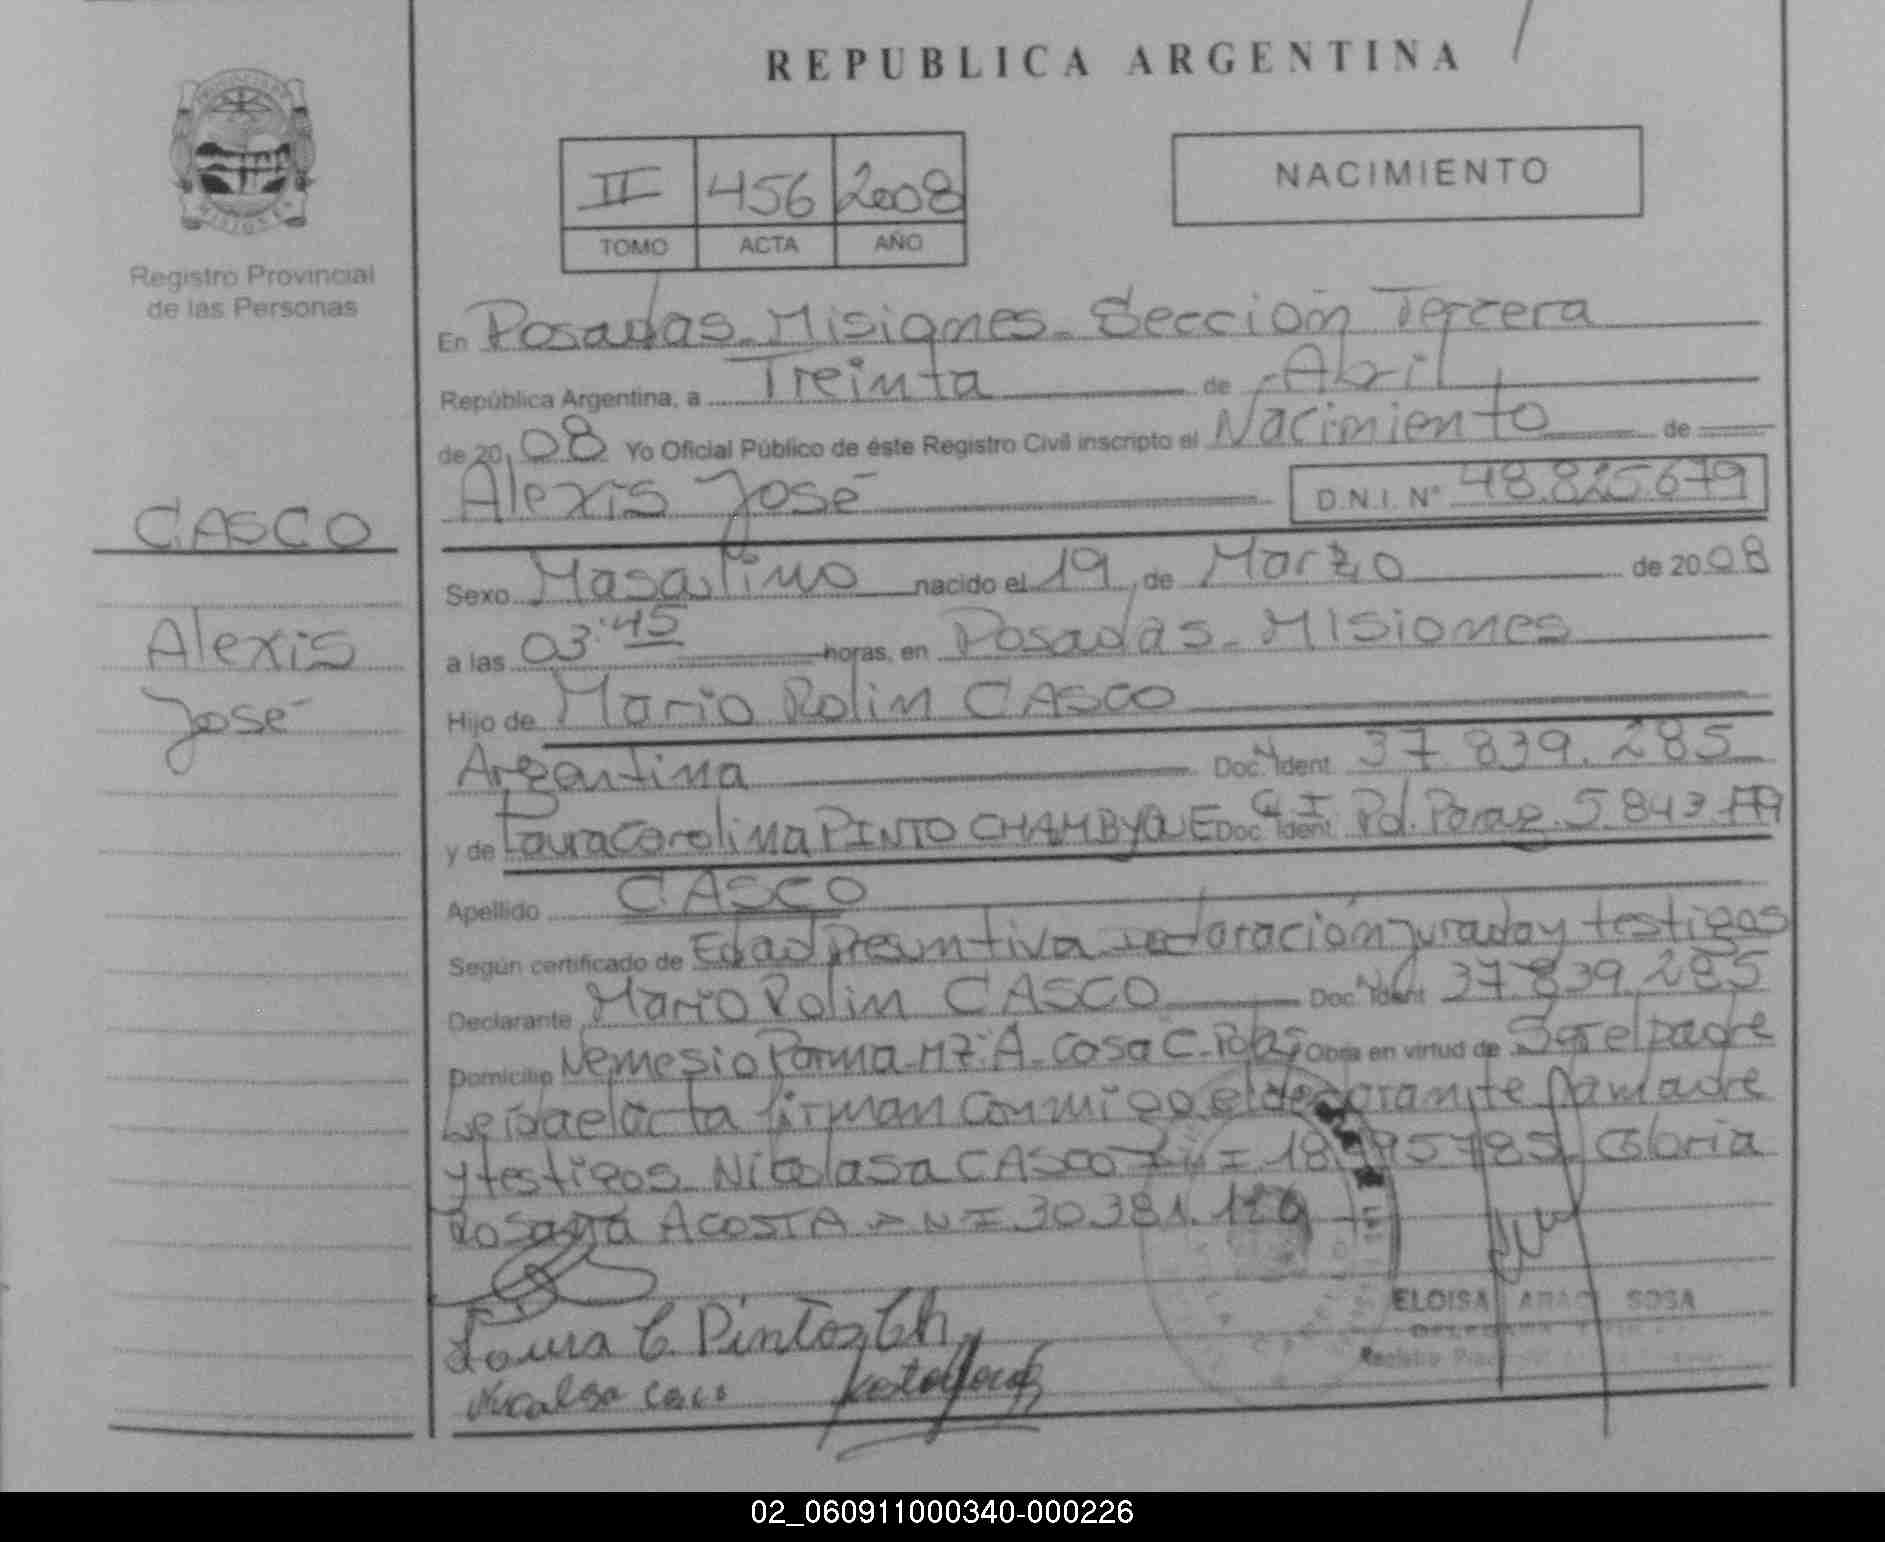 REPUBLICA ARGENTINA
II 456 2008
TOMO ACTA AÑO
NACIMIENTO
Registro Provincial
de las Personas
En Posadas - Misiones - Sección Tercera
República Argentina, a Treinta de Abril
de 2008 Yo Oficial Público de éste Registro Civil inscripto el Nacimiento de
Alexis José D.N.I. N° 48.825.679
CASCO
Alexis
José
Sexo Masculino nacido el 19 de Marzo de 2008
a las 03:45 horas, en Posadas - Misiones
Hijo de Mario Rolin CASCO
Argentina Doc. Ident. 37.839.285
y de Laura Carolina PINTO CHAMBYQUE Doc. Ident. C I Pol. Parag. 5.843
Apellido CASCO
Según certificado de Edad Presuntiva declaración jurada y testigos
Declarante Mario Rolin CASCO Doc. Ident. 37.839.285
Domicilio Nemesio Parma - Mz. A - Casa C - Obra en virtud de Ser el padre
Leída el acta firman conmigo el declarante la madre
y testigos Nicolasa CASCO Gloria
Rosana ACOSTA D N I 30.381.
Laura C. Pinto Ch
ELOISA SOSA
02_060911000340-000226